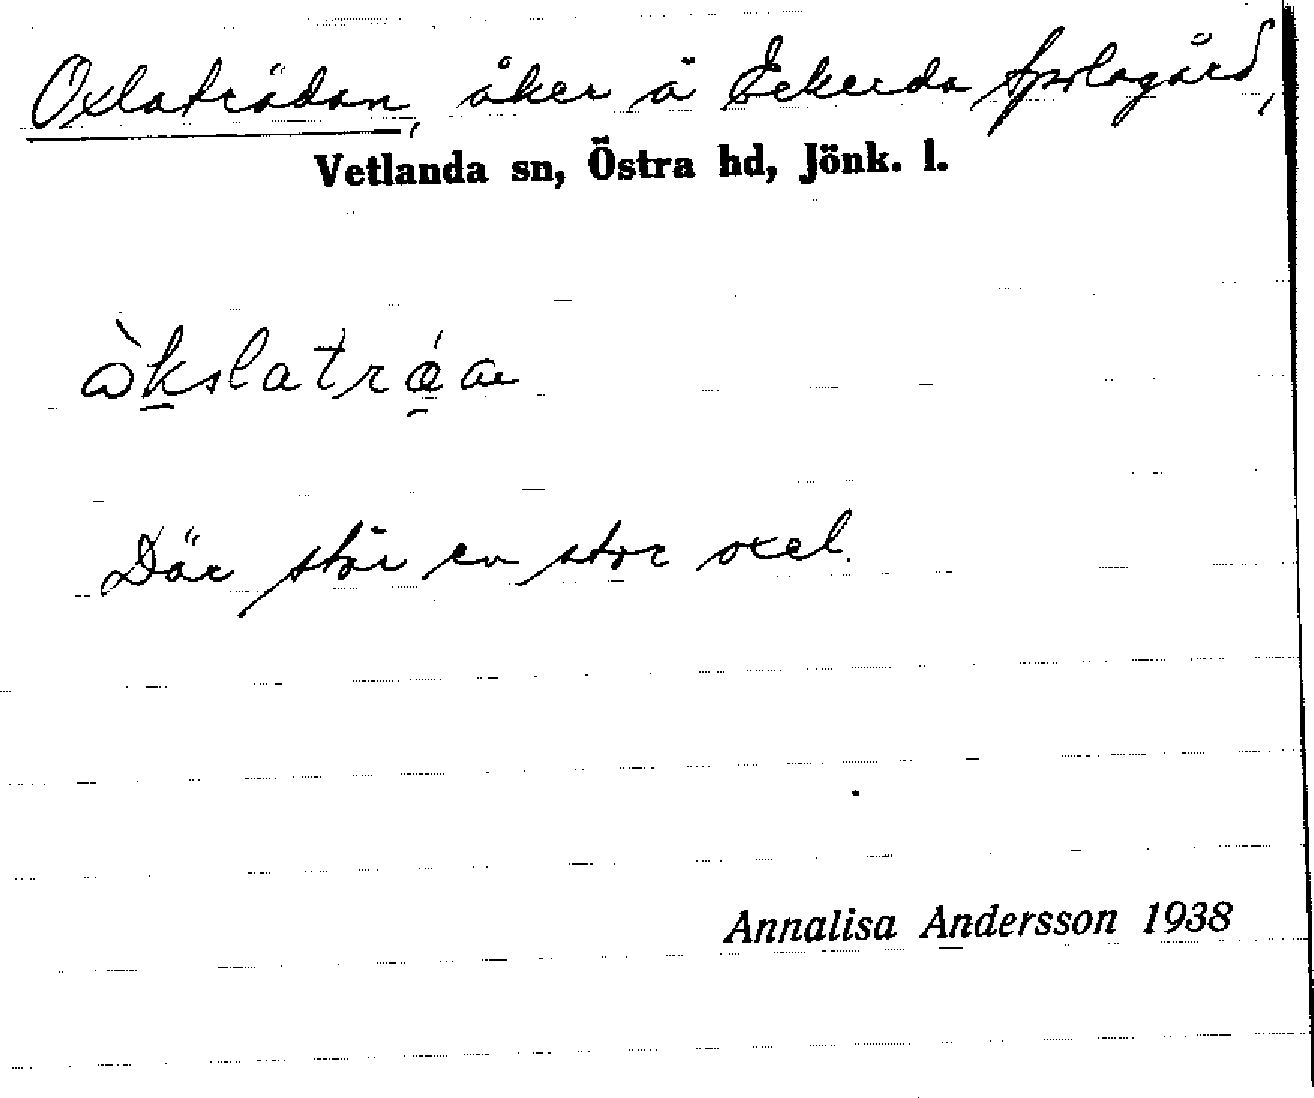 Oxlaträdan, åker å Ekerda Sörlagård,
Vetlanda sn, Östra hd, Jönk. l.
Där står en stor oxel.
Annalisa Andersson 1938